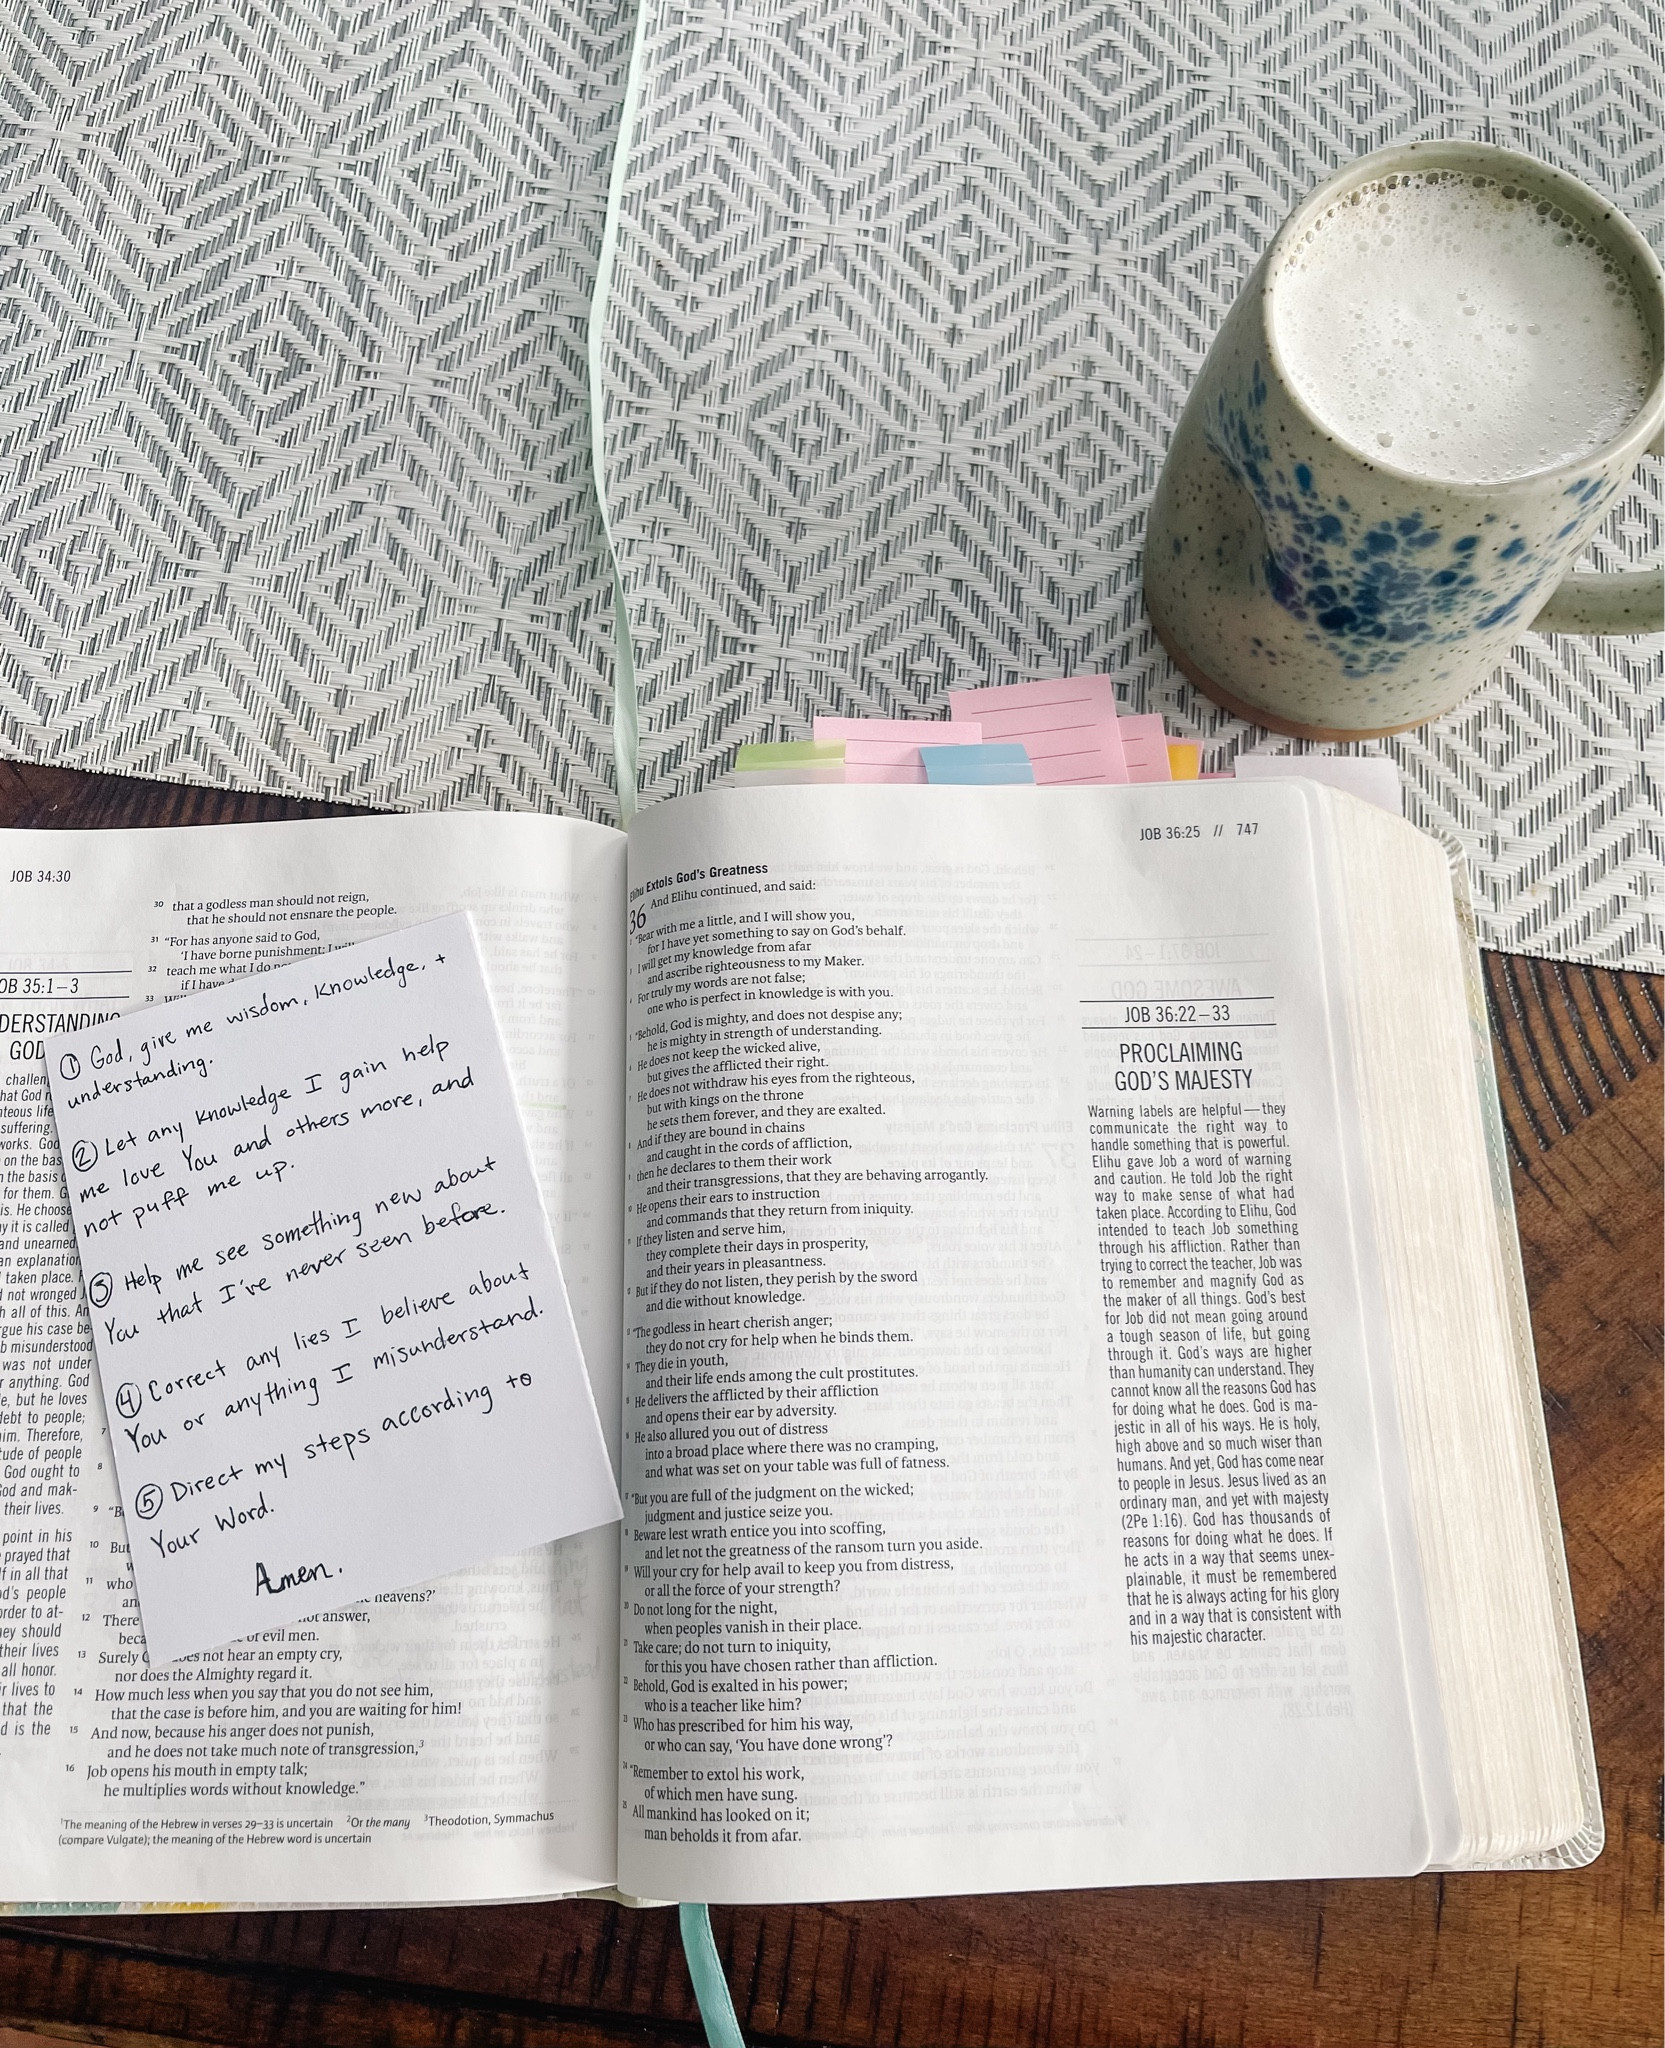 JOB 34:30
OB 35:1–3
DERSTANDING
GOD
challen
hat God
teous life
suffering.
works. God
on the bas
n the basis
for them. G
is. He choose
y it is called
and unearned
an explanation
taken place.
not wronged
h all of this. An
rgue his case be
b misunderstood
was not under
r anything. God
e, but he loves
debt to people;
im. Therefore,
tude of people
God ought to
od and mak-
their lives.
point in his
prayed that
f in all that
d's people
order to at-
ey should
their lives
all honor.
r lives to
that the
d is the
30 that a godless man should not reign,
that he should not ensnare the people.
31 “For has anyone said to God,
‘I have borne punishment; I will
32 teach me what I do
if I have
33
① God, give me wisdom, knowledge, +
understanding.
② Let any knowledge I gain help
me love You and others more, and
not puff me up.
③ Help me see something new about
You that I've never seen before.
④ Correct any lies I believe about
You or anything I misunderstand.
⑤ Direct my steps according to
Your Word.
Amen.
7
8
9
10 But
11 who
heavens?’
12 There
answer,
of evil men.
13 Surely not hear an empty cry,
nor does the Almighty regard it.
14 How much less when you say that you do not see him,
that the case is before him, and you are waiting for him!
15 And now, because his anger does not punish,
and he does not take much note of transgression,3
16 Job opens his mouth in empty talk;
he multiplies words without knowledge.”
1The meaning of the Hebrew in verses 29–33 is uncertain 2Or the many 3Theodotion, Symmachus
(compare Vulgate); the meaning of the Hebrew word is uncertain
JOB 36:25 // 747
Elihu Extols God's Greatness
36 And Elihu continued, and said:
2 “Bear with me a little, and I will show you,
for I have yet something to say on God's behalf.
3 I will get my knowledge from afar
and ascribe righteousness to my Maker.
4 For truly my words are not false;
one who is perfect in knowledge is with you.
5 “Behold, God is mighty, and does not despise any;
he is mighty in strength of understanding.
6 He does not keep the wicked alive,
but gives the afflicted their right.
7 He does not withdraw his eyes from the righteous,
but with kings on the throne
he sets them forever, and they are exalted.
8 And if they are bound in chains
and caught in the cords of affliction,
9 then he declares to them their work
and their transgressions, that they are behaving arrogantly.
10 He opens their ears to instruction
and commands that they return from iniquity.
11 If they listen and serve him,
they complete their days in prosperity,
and their years in pleasantness.
12 But if they do not listen, they perish by the sword
and die without knowledge.
13 “The godless in heart cherish anger;
they do not cry for help when he binds them.
14 They die in youth,
and their life ends among the cult prostitutes.
15 He delivers the afflicted by their affliction
and opens their ear by adversity.
16 He also allured you out of distress
into a broad place where there was no cramping,
and what was set on your table was full of fatness.
17 “But you are full of the judgment on the wicked;
judgment and justice seize you.
18 Beware lest wrath entice you into scoffing,
and let not the greatness of the ransom turn you aside.
19 Will your cry for help avail to keep you from distress,
or all the force of your strength?
20 Do not long for the night,
when peoples vanish in their place.
21 Take care; do not turn to iniquity,
for this you have chosen rather than affliction.
22 Behold, God is exalted in his power;
who is a teacher like him?
23 Who has prescribed for him his way,
or who can say, ‘You have done wrong’?
24 “Remember to extol his work,
of which men have sung.
25 All mankind has looked on it;
man beholds it from afar.
JOB 36:22–33
PROCLAIMING
GOD'S MAJESTY
Warning labels are helpful—they
communicate the right way to
handle something that is powerful.
Elihu gave Job a word of warning
and caution. He told Job the right
way to make sense of what had
taken place. According to Elihu, God
intended to teach Job something
through his affliction. Rather than
trying to correct the teacher, Job was
to remember and magnify God as
the maker of all things. God's best
for Job did not mean going around
a tough season of life, but going
through it. God's ways are higher
than humanity can understand. They
cannot know all the reasons God has
for doing what he does. God is ma-
jestic in all of his ways. He is holy,
high above and so much wiser than
humans. And yet, God has come near
to people in Jesus. Jesus lived as an
ordinary man, and yet with majesty
(2Pe 1:16). God has thousands of
reasons for doing what he does. If
he acts in a way that seems unex-
plainable, it must be remembered
that he is always acting for his glory
and in a way that is consistent with
his majestic character.